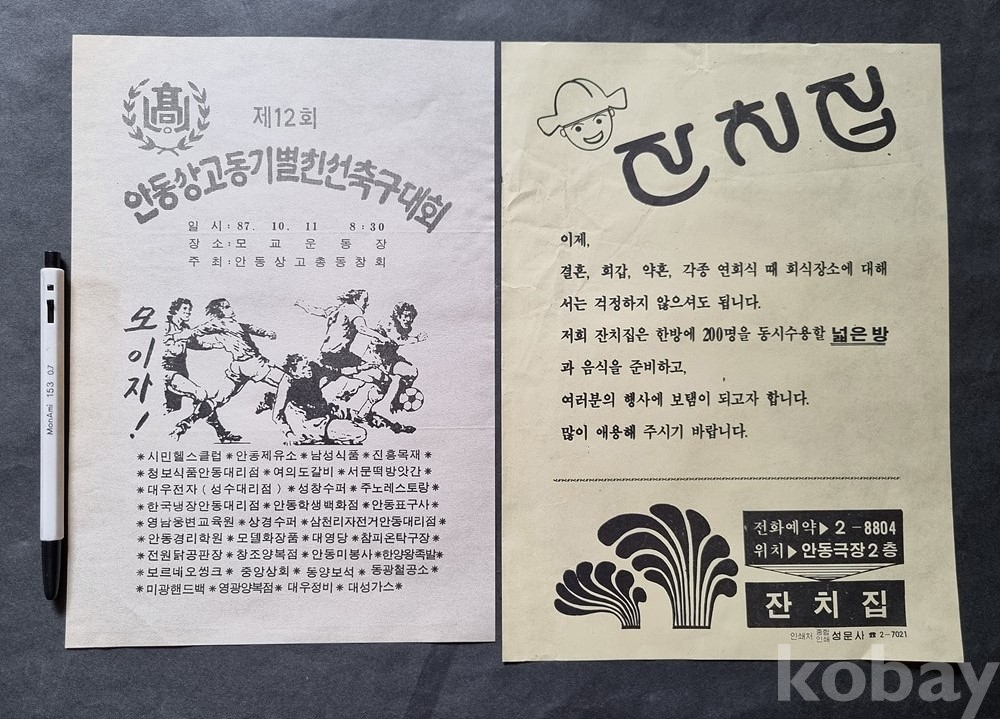 高
제12회
안동상고동기별친선축구대회
일 시 : 87. 10. 11 8 : 30
장 소 : 모 교 운 동 장
주 최 : 안 동 상 고 총 동 창 회
모이자!
*시민헬스클럽 *안동제유소 *남성식품 *진흥목재
*청보식품안동대리점 *여의도갈비 *서문떡방앗간
*대우전자 ( 성수대리점 ) *성창수퍼 *주노레스토랑
*한국냉장안동대리점 *안동학생백화점 *안동표구사
*영남웅변교육원 *상경수퍼 *삼천리자전거안동대리점
*안동경리학원 *모델화장품 *대영당 *참피온탁구장
*전원닭공판장 *창조양복점 *안동미봉사 *한양왕족발*
*보르네오씽크 *중앙상회 *동양보석 *동광철공소
*미광핸드백 *영광양복점 *대우정비 *대성가스*
MonAmi 153 0.7
잔치집
이제,
결혼, 회갑, 약혼, 각종 연회식 때 회식장소에 대해
서는 걱정하지 않으셔도 됩니다.
저희 잔치집은 한방에 200명을 동시수용할 넓은 방
과 음식을 준비하고,
여러분의 행사에 보탬이 되고자 합니다.
많이 애용해 주시기 바랍니다.
전화예약▶ 2-8804
위치▶ 안동극장2층
잔 치 집
인쇄처 종합인쇄 성문사 ☎ 2-7021
kobay